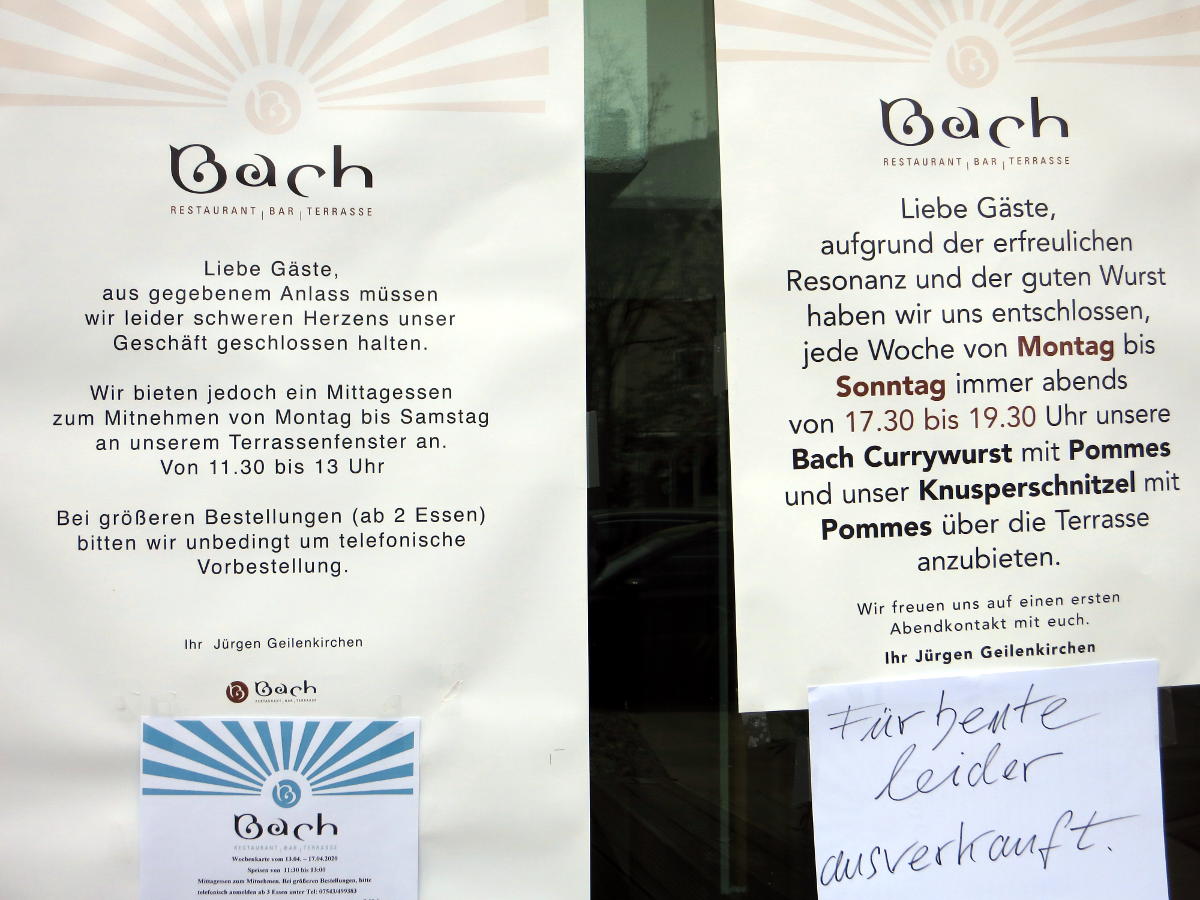 Bach
RESTAURANT | BAR | TERRASSE
Liebe Gäste,
aus gegebenem Anlass müssen
wir leider schweren Herzens unser
Geschäft geschlossen halten.
Wir bieten jedoch ein Mittagessen
zum Mitnehmen von Montag bis Samstag
an unserem Terrassenfenster an.
Von 11.30 bis 13 Uhr
Bei größeren Bestellungen (ab 2 Essen)
bitten wir unbedingt um telefonische
Vorbestellung.
Ihr Jürgen Geilenkirchen
Bach
RESTAURANT | BAR | TERRASSE
Bach
RESTAURANT | BAR | TERRASSE
Wochenkarte vom 13.04. – 17.04.2020
Speisen von 11:30 bis 13:00
Mittagessen zum Mitnehmen. Bei größeren Bestellungen, bitte
telefonisch anmelden ab 3 Essen unter Tel: 07543/499383
Bach
RESTAURANT | BAR | TERRASSE
Liebe Gäste,
aufgrund der erfreulichen
Resonanz und der guten Wurst
haben wir uns entschlossen,
jede Woche von Montag bis
Sonntag immer abends
von 17.30 bis 19.30 Uhr unsere
Bach Currywurst mit Pommes
und unser Knusperschnitzel mit
Pommes über die Terrasse
anzubieten.
Wir freuen uns auf einen ersten
Abendkontakt mit euch.
Ihr Jürgen Geilenkirchen
Für heute
leider
ausverkauft.